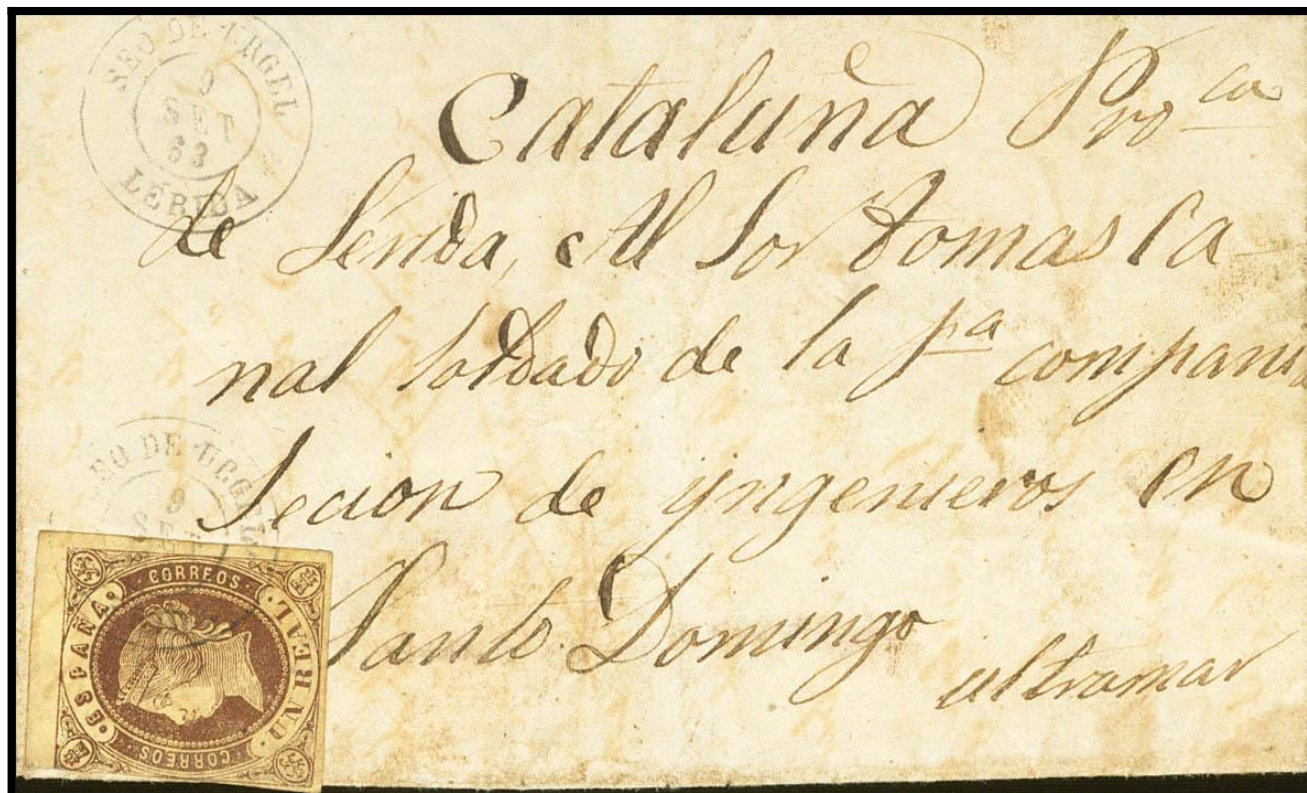 SEO DE URGEL
9
SET
63
LERIDA
Cataluña Pro^ca
de Lerida, Al Sor Tomas Ca-
nal soldado de la p^a compania
Secion de yngenieros en
Santo Domingo
ultramar
SEO DE URGEL
9
SET
CORREOS
ESPAÑA
UN REAL
CORREOS